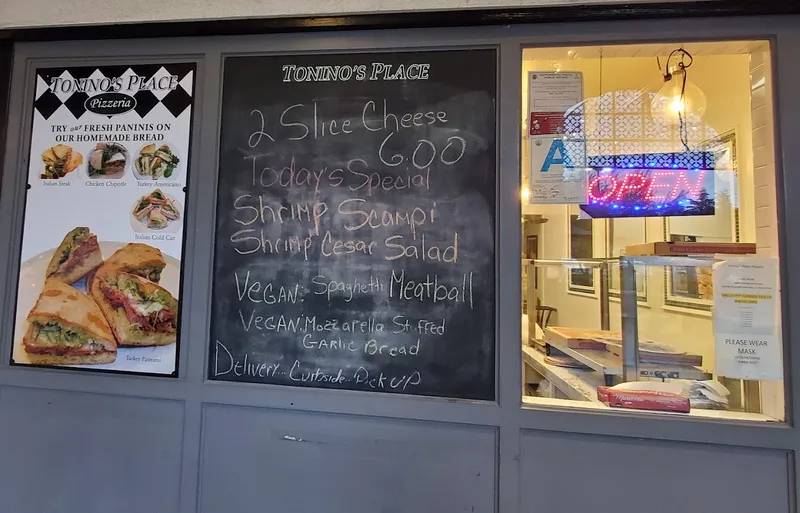 TONINO'S PLACE
Pizzeria
TRY our FRESH PANINIS ON
OUR HOMEMADE BREAD
Italian Steak
Chicken Chipotle
Turkey Americano
Italian Cold Cut
Turkey Panini
TONINO'S PLACE
2 Slice Cheese
6.00
Today's Special
Shrimp Scampi
Shrimp Cesar Salad
VEGAN: Spaghetti Meatball
VEGAN: Mozzarella Stuffed
GARLIC Bread
Delivery.. Curbside.. PickUP
A
OPEN
PLEASE WEAR
MASK